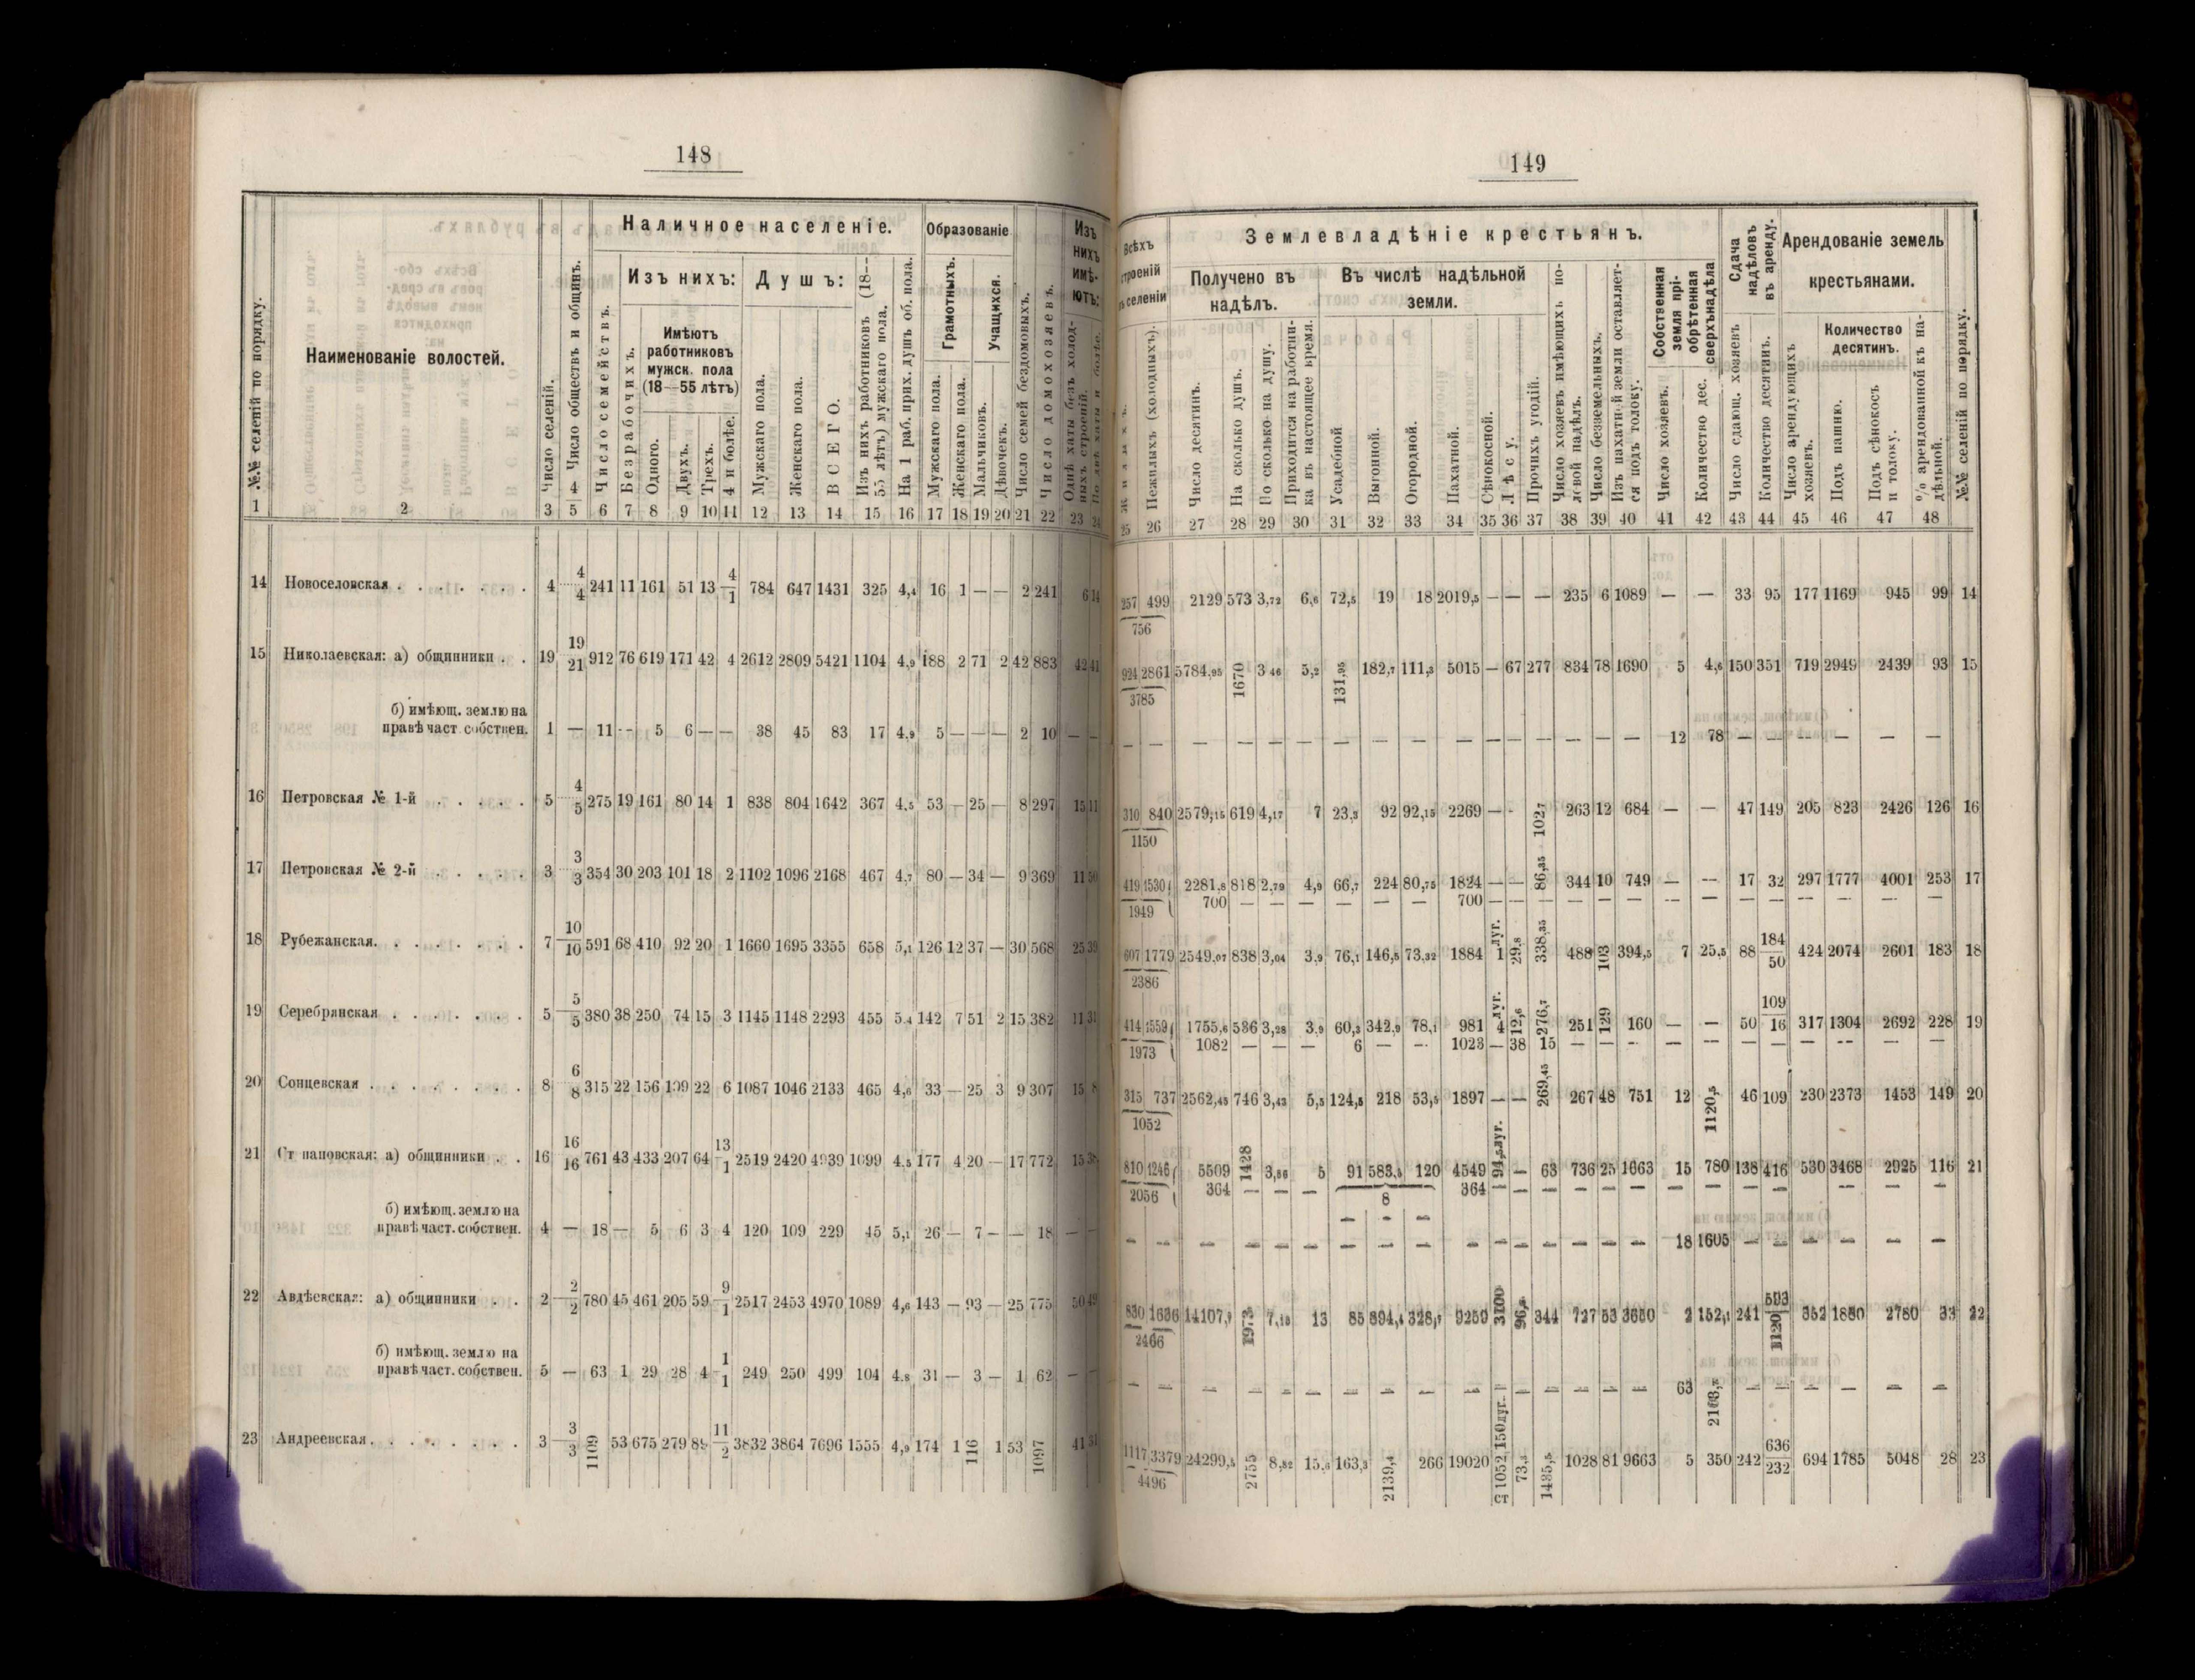 148
Наличное населеніе.
Образованіе
Изъ нихъ имѣ-ютъ:
№№ селеній по порядку.
Наименованіе волостей.
Число селеній.
Число обществъ и общинъ.
Число семействъ.
Изъ нихъ:
Безрабочихъ.
Имѣютъ
работниковъ
мужск. пола
(18—55 лѣтъ)
Одного.
Двухъ.
Трехъ.
4 и болѣе.
Душъ:
Мужскаго пола.
Женскаго пола.
ВСЕГО.
Изъ нихъ работниковъ (18—
55 лѣтъ) мужскаго пола.
На 1 раб. прих. душъ об. пола.
Грамотныхъ.
Учащихся.
Мужскаго пола.
Женскаго пола.
Мальчиковъ.
Дѣвочекъ.
Число семей бездомовыхъ.
Число домохозяевъ.
Однѣ хаты безъ холод-
ныхъ строеній.
По двѣ хаты и болѣе.
1 2 3 4 5 6 7 8 9 10 11 12 13 14 15 16 17 18 19 20 21 22 23 24
14 Новоселовская . . . . . . . 4 4/4 241 11 161 51 13 4/1 784 647 1431 325 4,4 16 1 — — 2 241 6 14
15 Николаевская: а) общинники . . 19 19/21 912 76 619 171 42 4 2612 2809 5421 1104 4,9 188 2 71 2 42 883 42 41
б) имѣющ. землю на
правѣ част собствен. 1 — 11 -- 5 6 — — 38 45 83 17 4,9 5 — — — 2 10 — —
16 Петровская № 1-й . . . . . 5 4/5 275 19 161 80 14 1 838 804 1642 367 4,5 53 — 25 — 8 297 15 11
17 Петровская № 2-й . . . . . 3 3/3 354 30 203 101 18 2 1102 1096 2168 467 4,7 80 — 34 — 9 369 11 50
18 Рубежанская. . . . . . . . 7 10/10 591 68 410 92 20 1 1660 1695 3355 658 5,1 126 12 37 — 30 568 25 39
19 Серебрянская . . . . . . . 5 5/5 380 38 250 74 15 3 1145 1148 2293 455 5,4 142 7 51 2 15 382 11 31
20 Сонцевская . . . . . . . . 8 6/8 315 22 156 109 22 6 1087 1046 2133 465 4,6 33 — 25 3 9 307 15 8
21 Ст пановская: а) общинники . . 16 16/16 761 43 433 207 64 13/1 2519 2420 4939 1099 4,5 177 4 20 — 17 772 15
б) имѣющ. землю на
правѣ част. собствен. 4 — 18 — 5 6 3 4 120 109 229 45 5,1 26 — 7 — — 18 — —
22 Авдѣевская: а) общинники . . 2 2/2 780 45 461 205 59 9/1 2517 2453 4970 1089 4,6 143 — 93 — 25 775 50 49
б) имѣющ. землю на
правѣ част. собствен. 5 — 63 1 29 28 4 1/1 249 250 499 104 4,8 31 — 3 — 1 62 — —
23 Андреевская. . . . . . . . 3 3/3 1109 53 675 279 89 11/2 3832 3864 7696 1555 4,9 174 1 116 1 53 1097 41 51
149
Всѣхъ
строеній
въ селеніи
Землевладѣніе крестьянъ.
Сдача
надѣловъ
въ аренду.
Арендованіе земель
крестьянами.
Жилыхъ.
Нежилыхъ (холодныхъ).
Получено въ
надѣлъ.
Число десятинъ.
На сколько душъ.
По сколько на душу.
Приходится на работни-
ка въ настоящее время.
Въ числѣ надѣльной
земли.
Усадебной
Выгонной.
Огородной.
Пахатной.
Сѣнокосной.
Лѣсу.
Прочихъ угодій.
Число хозяевъ имѣющихъ по-
левой надѣлъ.
Число безземельныхъ.
Изъ пахатной земли оставляет-
ся подъ толоку.
Собственная
земля прі-
обрѣтенная
сверхънадѣла
Число хозяевъ.
Количество дес.
Число сдающ. хозяевъ
Количество десятинъ.
Число арендующихъ
хозяевъ.
Количество
десятинъ.
Подъ пашню.
Подъ сѣнокосъ
и толоку.
% арендованной къ на-
дѣльной.
№№ селеній по порядку.
25 26 27 28 29 30 31 32 33 34 35 36 37 38 39 40 41 42 43 44 45 46 47 48
257 499 2129 573 3,72 6,6 72,5 19 18 2019,5 — — — 235 6 1089 — — 33 95 177 1169 945 99 14
756
924 2861 5784,95 1670 3 46 5,2 131,95 182,7 111,3 5015 — 67 277 834 78 1690 5 4,6 150 351 719 2949 2439 93 15
3785
— — — — — — — — — — — — — — — — 12 78 — — -- — — —
310 840 2579,15 619 4,17 7 23,3 92 92,15 2269 — - 102,7 263 12 684 — — 47 149 205 823 2426 126 16
1150
419 1530 2281,8 818 2,79 4,9 66,7 224 80,75 1824 — — 86,35 344 10 749 — -- 17 32 297 1777 4001 253 17
1949 700 — — — — — — 700 — — — — — — -- — — — — -- — —
607 1779 2549,07 838 3,04 3,9 76,1 146,5 73,32 1884 1 луг. 29,8 338,35 488 103 394,5 7 25,5 88 184/50 424 2074 2601 183 18
2386
414 1559 1755,6 536 3,28 3,9 60,3 342,9 78,1 981 4 луг. 12,6 276,7 251 129 160 — — 50 109/16 317 1304 2692 228 19
1973 1082 — — — 6 — — 1023 — 38 15 — — — — — — — — — — —
315 737 2562,45 746 3,43 5,5 124,5 218 53,5 1897 — — 269,45 267 48 751 12 1120,5 46 109 230 2373 1453 149 20
1052
810 1246 5509 1428 3,86 5 91 583,5 120 4549 94,5 луг. — 63 736 25 1663 15 780 138 416 530 3468 2925 116 21
2056 364 — — — 8 364 — — — — — — — — — — — — — —
— - —
— — — — — — — — — — — — — — — — 18 1605 — — — — — —
830 1636 14107,9 1973 7,15 13 85 894,4 328,7 9259 3100 96,8 344 727 53 3650 2 152,1 241 593/1120 352 1880 2780 33 22
2466
— — — — — — — — — — — — — — — — 63 — — — — — —
1117 3379 24299,5 2755 8,82 15,6 163,3 2139,4 266 19020 ст 1052 150 луг. 73,5 1435,5 1028 81 9663 5 350 242 636/232 694 1785 5048 28 23
4496